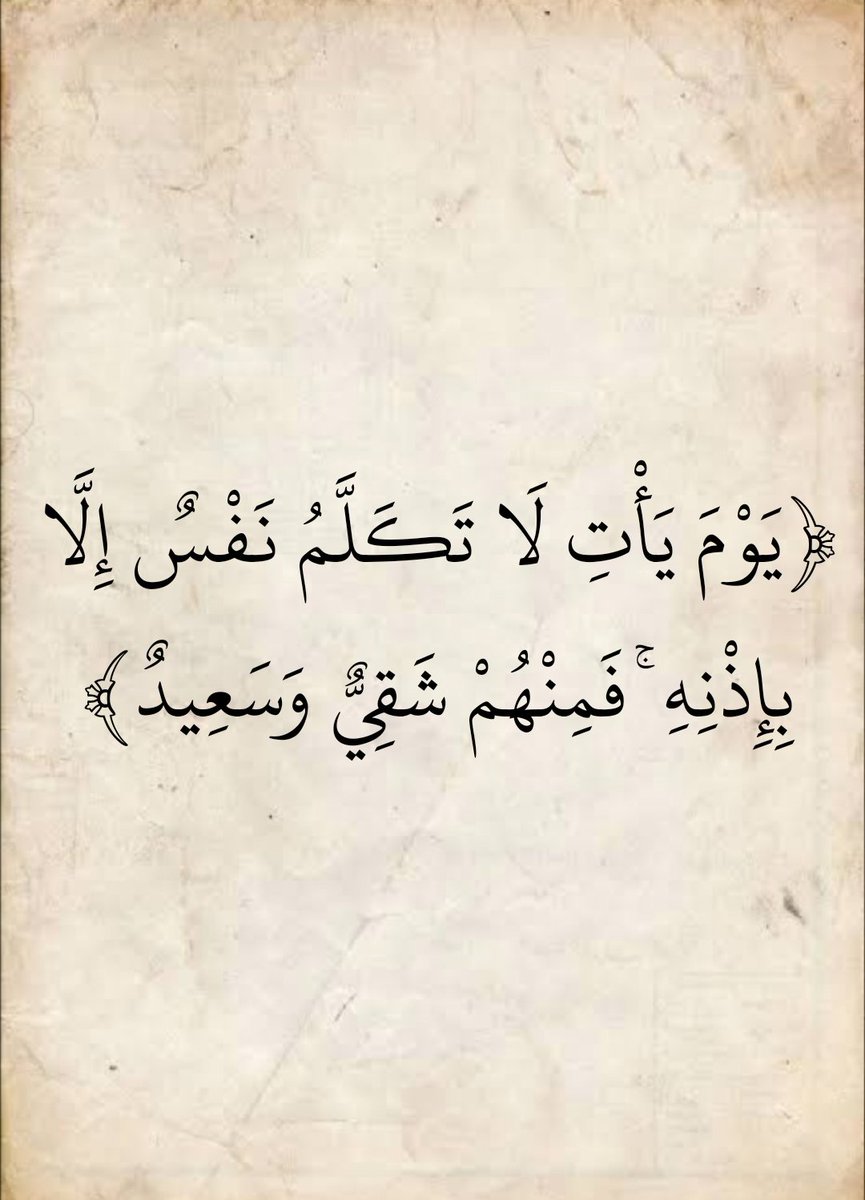 ﴿يَوْمَ يَأْتِ لَا تَكَلَّمُ نَفْسٌ إِلَّا
بِإِذْنِهِ ۚ فَمِنْهُمْ شَقِيٌّ وَسَعِيدٌ﴾